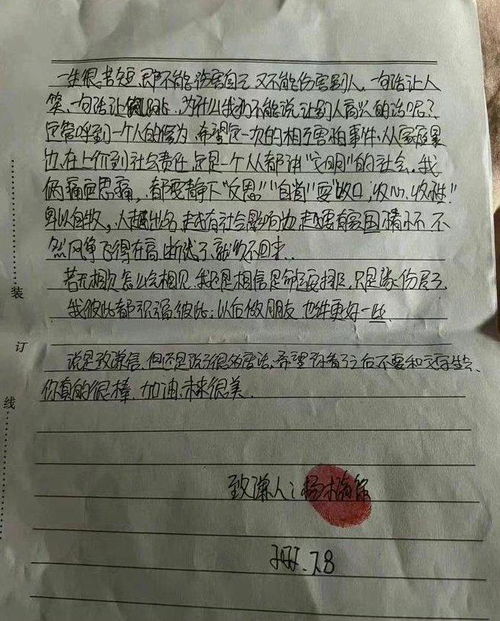 一生很苦短,即不能伤害自己,又不能伤害别人,一句话让人
笑,一句话让人跳,为什么我们不能说让别人高兴的话呢?
它关呼到一个人的修为,希望这一次的相互害怕事件,从家庭
出,在上价到社会责任,这是一个从都讲"文明"的社会,我
俩痛定思痛,都要静下"反思""自省"要"收口,收心,收性"
卑以自牧,人越出名,越有社会影响力,越要有家国情怀,不
然风筝飞得在高,断线了,就飞不回来..
若无相欠怎么会相见,我还是相信是命运安排,只是缘份尽了
我彼此都祝福彼此,以后做朋友 也许更好一些
说是致谦信,但还是说了很多废话,希望你看了之后不要和文字生气
你真的很棒,加油,未来很美
致谦人:
7.8
装
订
线